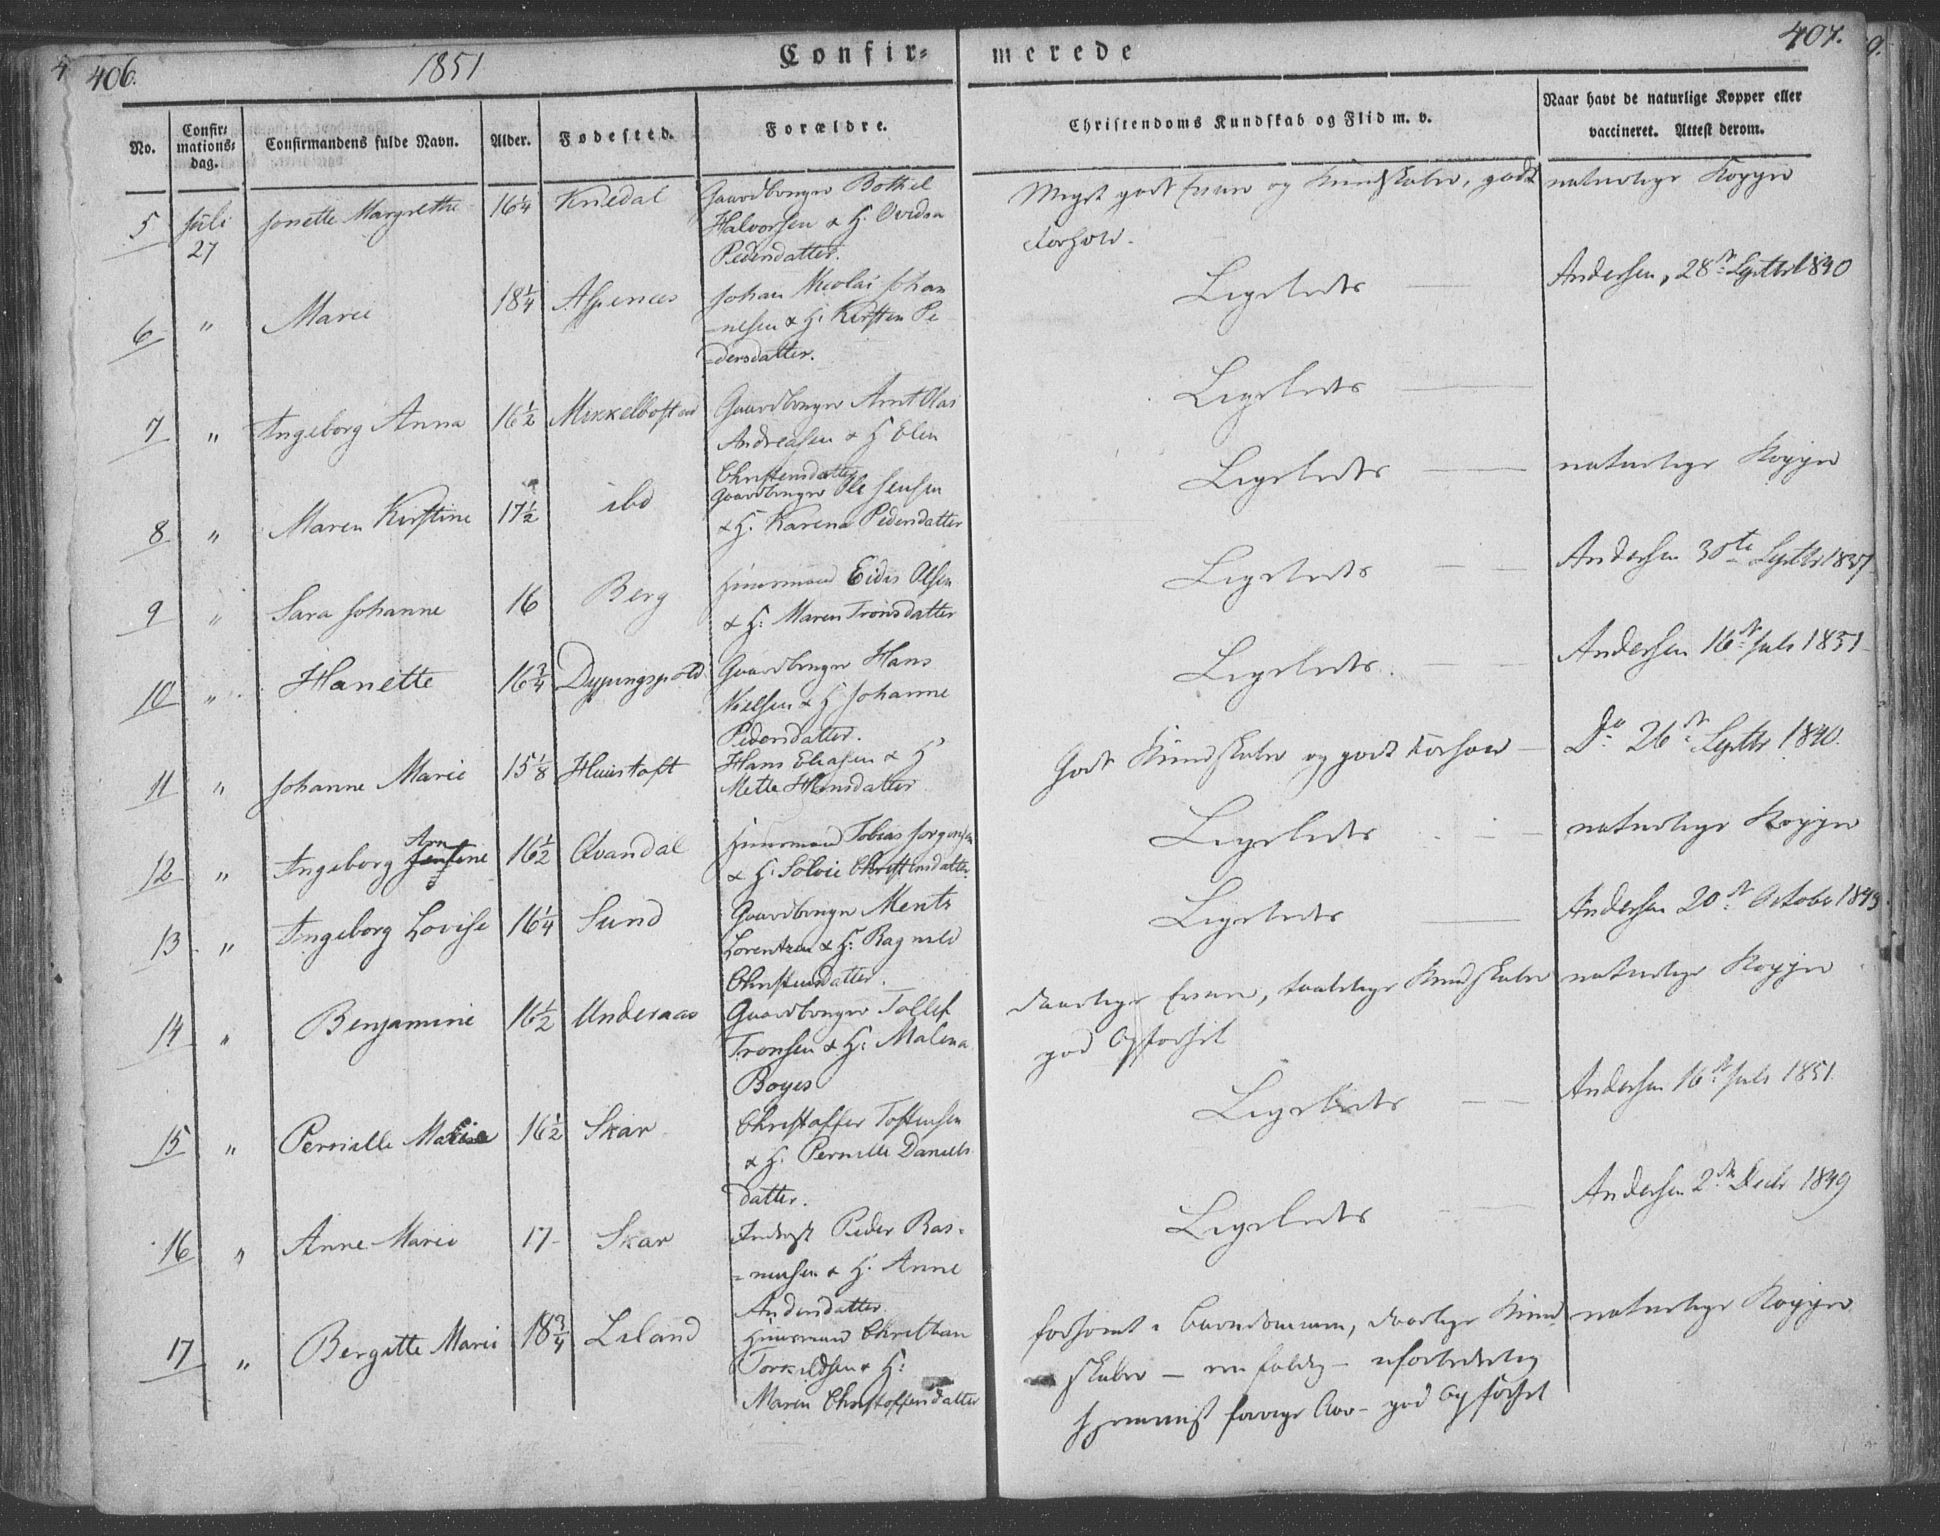 406.
1851
Confir=
merede
407.
No.
Confir=
mations=
dag.
Confirmandens fulde Navn.
Alder.
Fødested.
Forældre.
Christendoms Kundskab og Flid m. v.
Naar havt de naturlige Kopper eller
vaccineret. Attest derom.
5 Juli Jonette Margrethe 16¼ Gaardbruger Bothel
27 Halvorsen & H.
Pedersdatter.
Meget godt og Kundskaber, godt
Forhold.
naturlige Kopper
6 " Marie 18¼ Johan Nicolai Johan
=nesen & H: Kirsten Pe
=dersdatter.
Ligeledes
Andersen, 28de Septbr 1840
7 " Ingeborg Anna 16½ Gaardbruger Arnt Olai
Andreasen & H Elen
Christensdatter
Ligeledes
8 " Maren Kirstine 17½ ibd Gaardbruger Ole Jensen
& H. Karena Pedersdatter
Ligeledes
naturlige Kopper
9 " Sara Johanne 16 Berg Huusmand Eidis Olsen
& H: Maren Tronsdatter
Ligeledes
Andersen 30te Septbr 1837
10 " Hanette 16¾ Gaardbruger Hans
Nielsen & H Johanne
Pedersdatter.
Ligeledes.
Andersen 16de Juli 1851
11 " Johanne Marie 15⅛ Hans Eliasen & H
Mette Hansdatter
Godt Kundskaber og godt Forhold
Do 26de Septbr 1840.
12 " Ingeborg Arn 16½ Qvandal Huusmand Tobias Jørgensen
& H: Solvie Christensdatter
Ligeledes
naturlige Kopper
13 " Ingeborg Lovise 16¼ Sund Gaardbruger Ments
Lorentzen & H: Ragnild
Christensdatter.
Ligeledes
Andersen 20de October 1843
14 " Benjamine 16½ Underaas Gaardbruger Tollef
Tronsen & H: Malena
Boyes
daarlige Evner, taalelige Kundskaber
god Opførsel
naturlige Kopper
15 " Pernille 16½ Skar Christaffer Tostensen
& H. Pernille Daniels
datter.
Ligeledes
Andersen 16de Juli 1851.
16 " Anne Marie 17 Skar Inderst Peder Ras=
=musen & H. Anne
Andersdatter.
Ligeledes
Andersen 2den Decbr 1849
17 " Bergitte Marie 18¾ Liland Huusmand Christian
Torkildsen & H:
Maren Christoffersdatter
forsømt i Barndommen, daarlige Kund
skaber – enfoldig –
forrige Aar – god Opførsel
naturlige Kopper